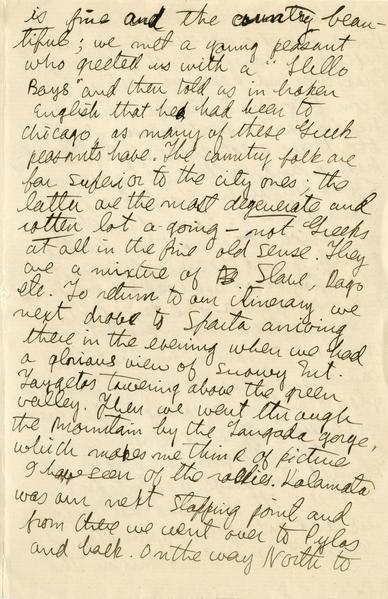 is fine and the country beau-
tiful; we met a young peasant
who greeted us with a "Hello
Boys" and then told us in broken
English that he had been to
Chicago, as many of these Greek
peasants have. The country folk are
far superior to the city ones; the
latter are the most degenerate and
rotten lot a-going — not Greeks
at all in the fine old sense. They
are a mixture of Slave, Dago
etc. To return to our itinerary, we
next drove to Sparta arriving
there in the evening when we had
a glorious view of snowy Mt.
Taygetos towering above the green
valley. Then we went through
the mountain by the Langada gorge,
which makes me think of picture
I have seen of the rockies. Kalamata
was our next stopping point and
from there we went over to Pylos
and back. On the way North to